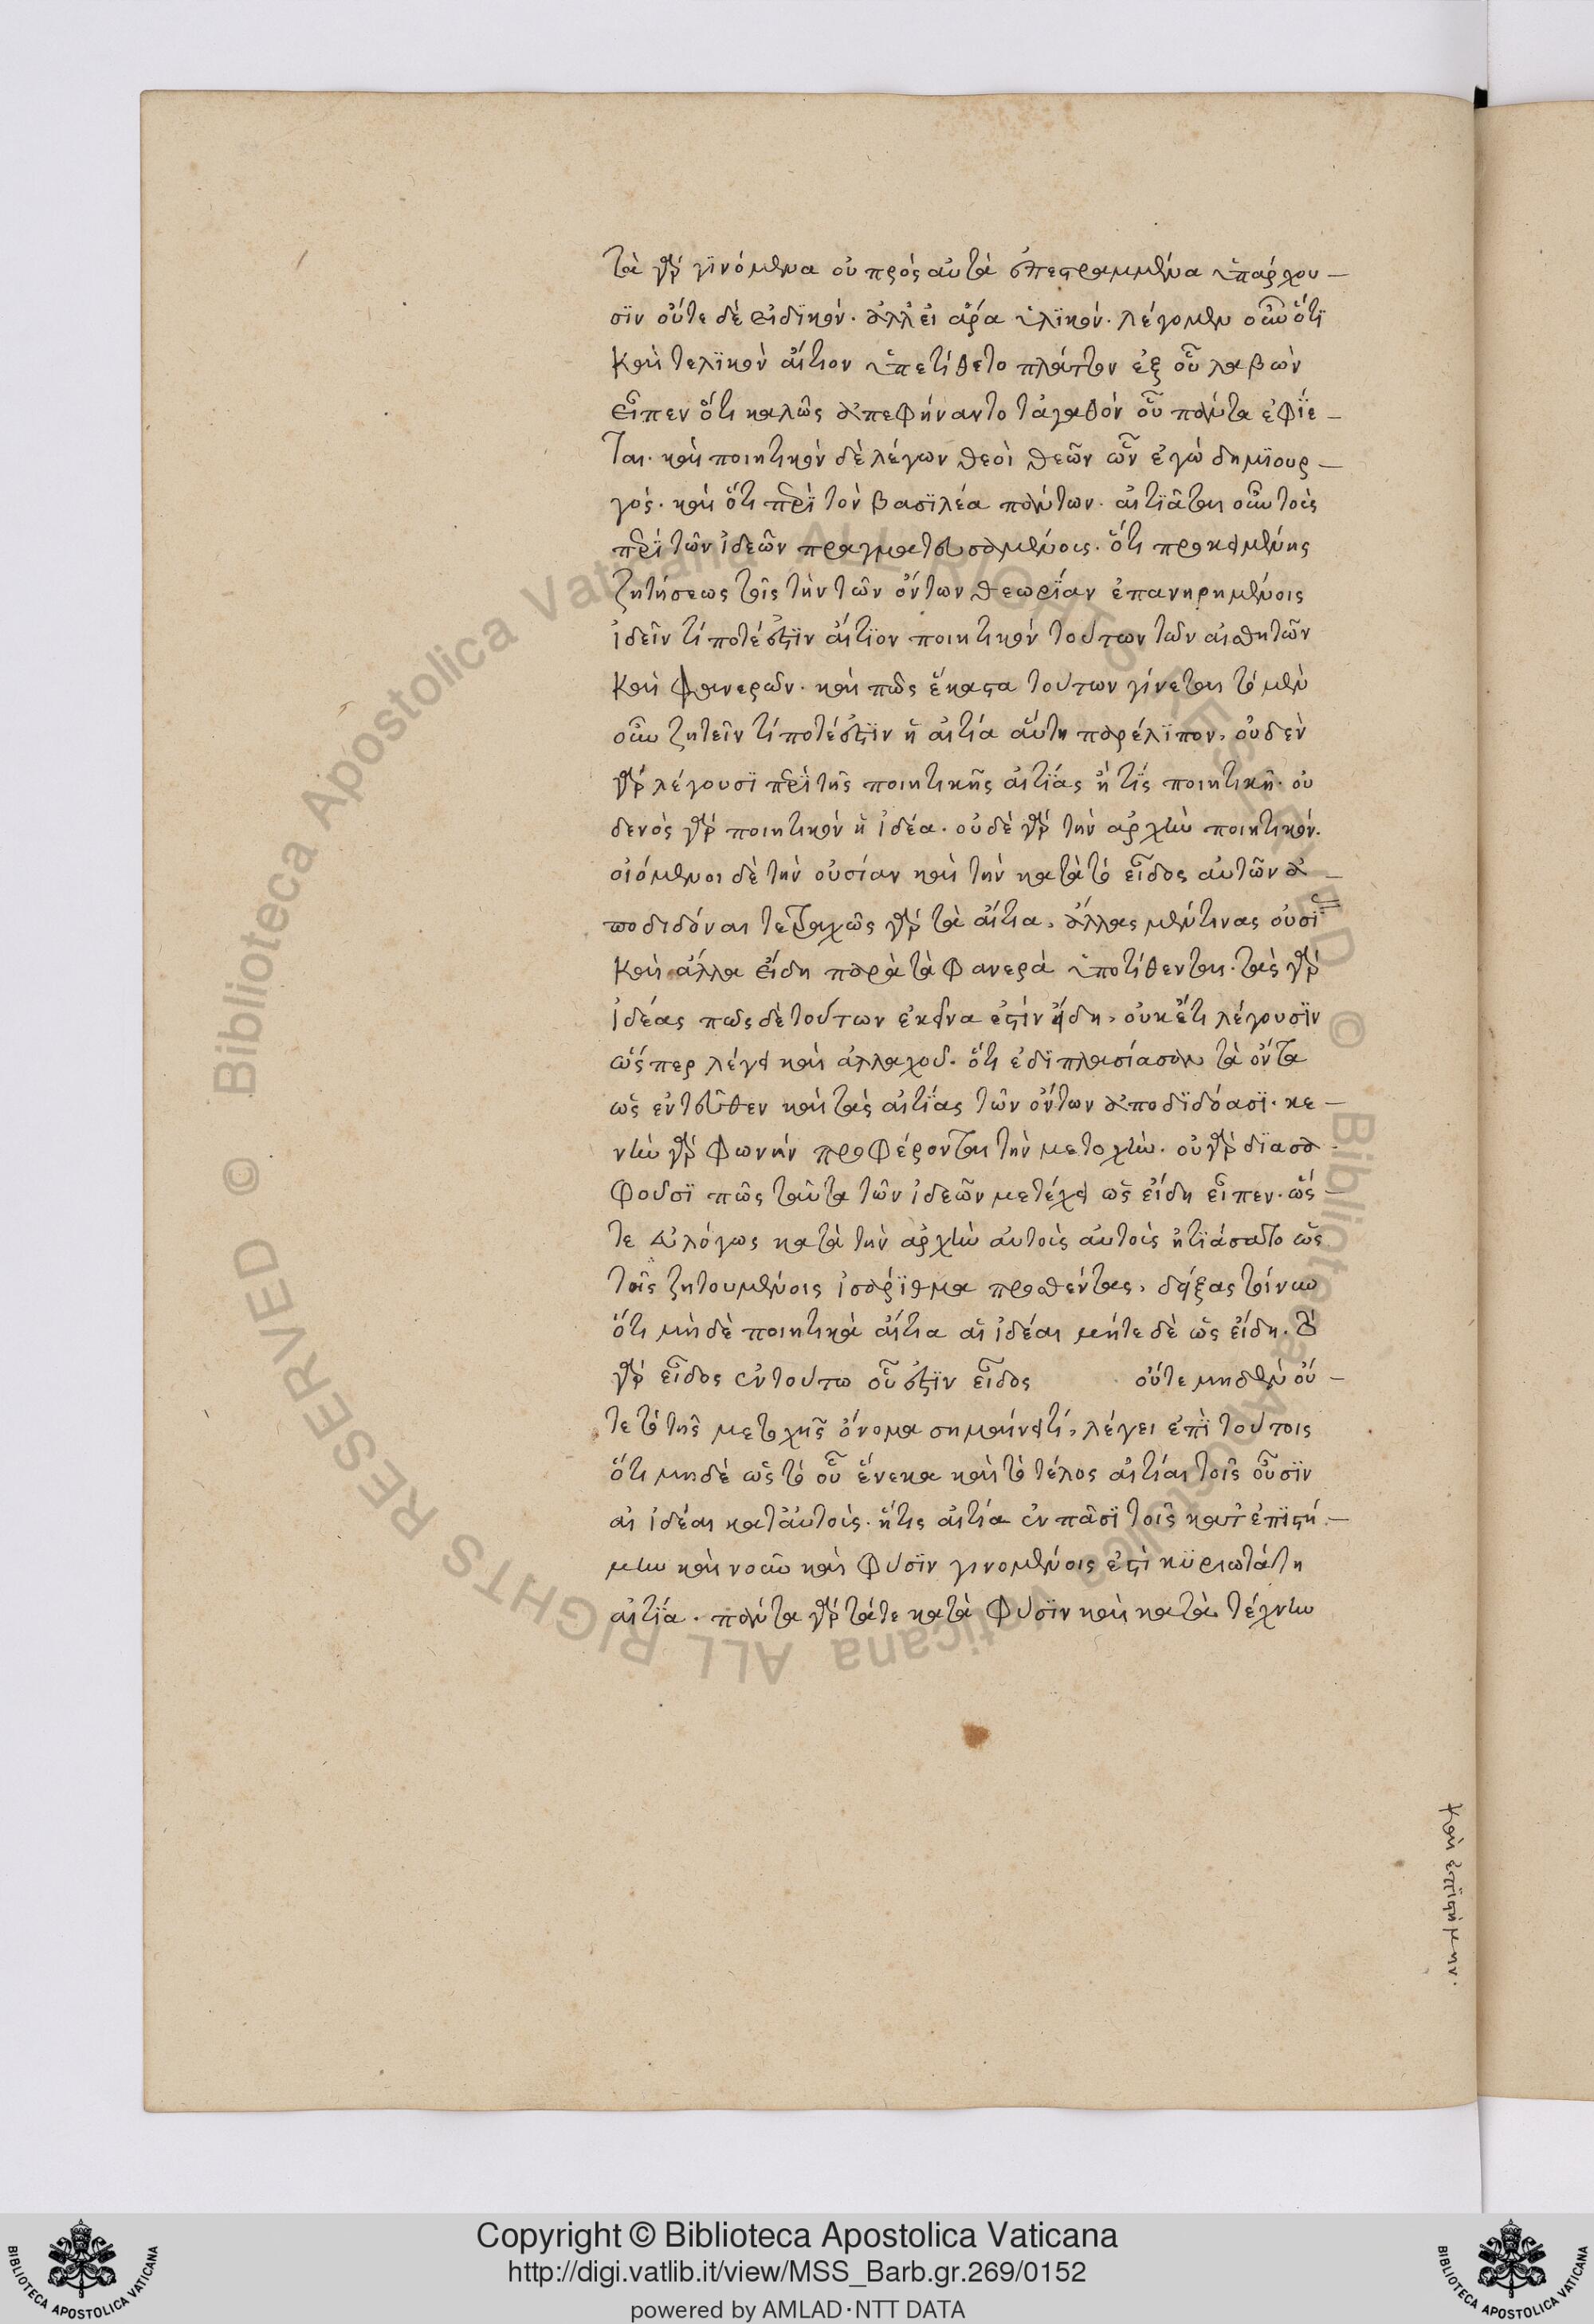 τὰ γὰρ γϊνόμενα οὐ πρὸς αὐτὰ ἐπεστραμμένα ὑπάρχου –
σϊν οὔτε δὲ εἰδϊκόν. ἀλλ εἰ ἄρα ὑλϊκόν. λέγομεν οὖν ὅτϊ
καὶ τελϊκὸν αἴτιον ὑπετίθετο πλάτων ἐξ οὗ λαβὼν
εἶπεν ὅτι καλῶς ἀπεφήναντο τἀγαθὸν οὗ πάντα ἐφΐε –
ται. καὶ ποιητικὸν δὲ λέγων θεοὶ θεῶν ὧν ἐγὼ δημϊουρ –
γός. καὶ ὅτι περὶ τὸν βασϊλέα πάντων. αἰτϊᾶται οὖν τοὺς
περὶ τῶν ἰδεῶν πραγματευσαμένους. ὅτι προκειμένης
ζητήσεως τοῖς τὴν τῶν ὄντων θεωρΐαν ἐπανηρημένοις
ἰδεῖν τί ποτέ ἐστϊν αἴτϊον ποιητικὸν τούτων τῶν αἰσθητῶν
καὶ φανερῶν. καὶ πῶς ἕκαστα τούτων γίνεται τὸ μὲν
οὖν ζητεῖν τί ποτέ ἐστϊν ἡ αἰτία αὕτη παρέλϊπον, οὐδὲν
γὰρ λέγουσϊ περὶ τῆς ποιητικῆς αἰτΐας ἢ τΐς ποιητικὴ. οὐ
δενὸς γὰρ ποιητικὸν ἡ ἰδέα. οὐδὲ γὰρ τὴν ἀρχὴν ποιητικόν.
οἰόμενοι δὲ τὴν οὐσίαν καὶ τὴν κατὰ τὸ εἶδος αὐτῶν ἀ –
ποδιδόναι τετραχῶς γὰρ τὰ αἴτια, ἄλλας μέν τινας οὐσί
καὶ ἄλλα εἴδη παρὰ τὰ φανερὰ ὑποτίθενται. τὰς γὰρ
ἰδέας πῶς δὲ τούτων ἐκεῖνα ἐστὶν εἴδη, οὐκ ἔτι λέγουσϊν
ὥσπερ λέγει καὶ ἀλλαχοῦ. ὅτι ἐδϊπλασίασαν τὰ ὄντα
ὡς ἐντεῦθεν καὶ τὰς αἰτΐας τῶν ὄντων ἀποδϊδόασϊ. κε –
νὴν γὰρ φωνὴν προφέρονται τὴν μετοχὴν. οὐ γὰρ δϊασα
φοῦσϊ πῶς ταῦτα τῶν ἰδεῶν μετέχει ὡς εἴδη εἶπεν. ὥς –
τε εὐλόγως κατὰ τὴν ἀρχὴν αὐτοὺς αὐτοὺς ᾐτϊάσατο ὡς
τοῖς ζητουμένοις ἰσάρϊθμα προθέντας, δείξας τοίνυν
ὅτι μὴ δὲ ποιητικὰ αἴτια αἱ ἰδέαι μήτε δὲ ὡς εἴδη. τὸ
γὰρ εἶδος ἐν τούτω οὗ ἐστϊν εἶδος οὔτε μηδὲν οὔ –
τε τὸ τῆς μετοχῆς ὄνομα σημαίνει τί, λέγει ἐπὶ τούτοις
ὅτι μηδὲ ὡς τὸ οὗ ἕνεκα καὶ τὸ τέλος αἰτίαι τοῖς οὖσϊν
αἱ ἰδέαι κατ αὐτοὺς. ἥτις αἰτία ἐν πᾶσϊ τοῖς κατ ἐπϊστή –
μην καὶ νοῦν καὶ φύσϊν γινομένοις ἐστὶ κϋριωτάτη
αἰτΐα. πάντα γὰρ τά τε κατὰ φύσϊν καὶ κατὰ τέχνην
καὶ ἐπϊστήμην.
Biblioteca Apostolica Vaticana ALL RIGHTS RESERVED © Biblioteca Apostolica Vaticana ALL RIGHTS RESERVED ©
Copyright © Biblioteca Apostolica Vaticana
http://digi.vatlib.it/view/MSS_Barb.gr.269/0152
powered by AMLAD·NTT DATA
BIBLIOTECA APOSTOLICA VATICANA
BIBLIOTECA APOSTOLICA VATICANA